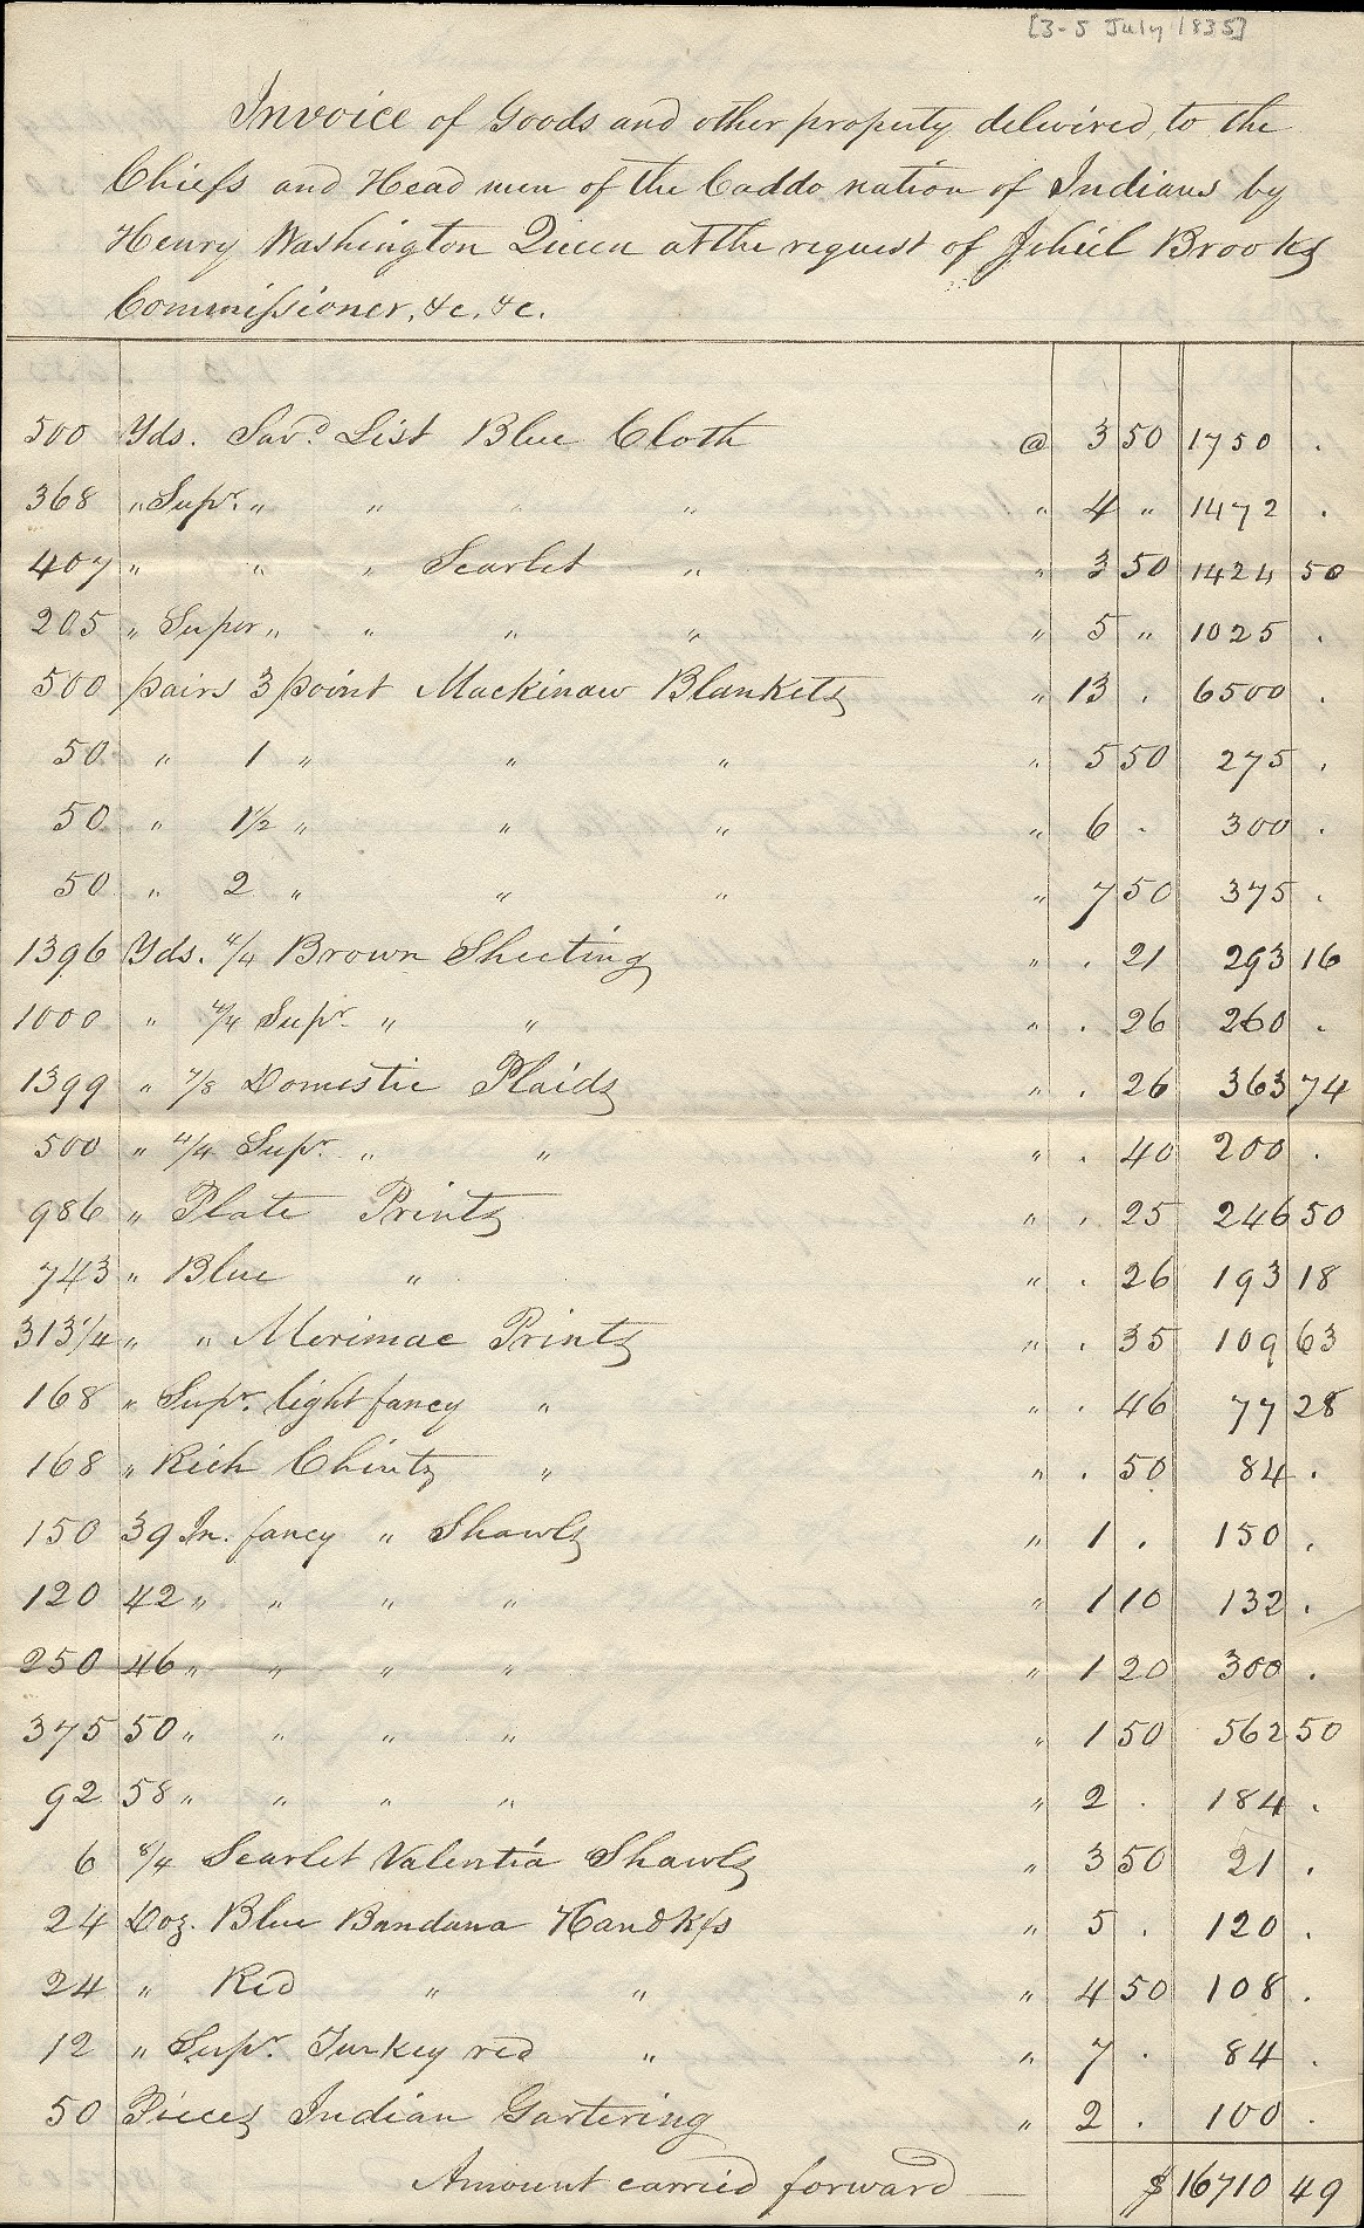 [3-5 July 1835]
Invoice of Goods and other property delivired, to the
Chiefs and Head men of the Caddo nation of Indians by
Henry Washington Queen at the request of Jehiel Brooks
Commissioner, &c. &c.
500 Yds. Savd. List Blue Cloth @ 3 50 1750 .
368 " Supr. " " " " " 4 " 1472 .
407 " " " Scarlet " " 3 50 1424 50
205 " Super " " " " " 5 " 1025 .
500 pairs 3 point Mackinaw Blankets " 13 . 6500 .
50 " 1 " " " " 5 50 275 .
50 " 1½ " " " " 6 . 300 .
50 " 2 " " " " 7 50 375 .
1396 Yds. 4/4 Brown Sheeting " . 21 293 16
1000 " 4/4 Supr. " " " . 26 260 .
1399 " 7/8 Domestic Plaids " . 26 363 74
500 " 4/4 Supr. " " " . 40 200 .
986 " Plate Prints " . 25 246 50
743 " Blue " " . 26 193 18
313¼ " " Merimac Prints " . 35 109 63
168 " Supr. light fancy " " . 46 77 28
168 " Rich Chintz " " . 50 84 .
150 39 In. fancy " Shawls " 1 . 150 .
120 42 " " " " " 1 10 132 .
250 46 " " " " " 1 20 300 .
375 50 " " " " " 1 50 562 50
92 58 " " " " " 2 . 184 .
6 8/4 Scarlet Valentia Shawls " 3 50 21 .
24 Doz. Blue Bandana Handkfs " 5 . 120 .
24 " Red " " " 4 50 108 .
12 " Supr. Turkey red " " 7 . 84 .
50 Pieces Indian Gartering " 2 . 100 .
Amount carried forward — $ 16710 49